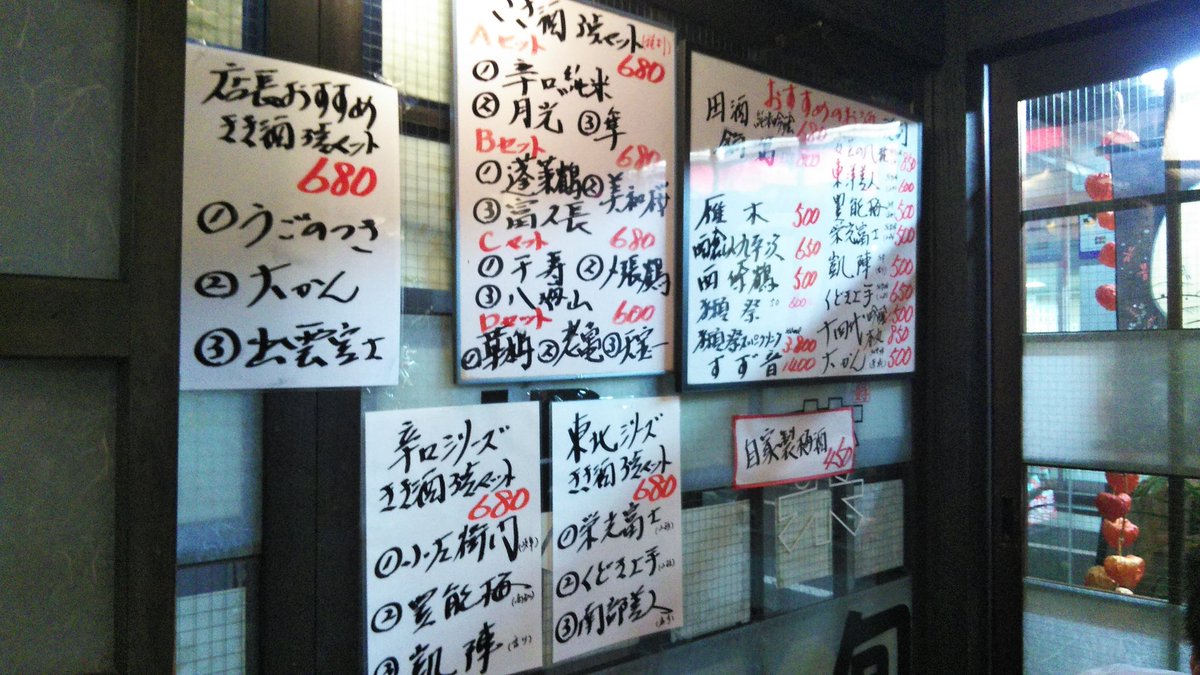 店長おすすめ
きき酒3種セット
680
①うごのつき
②大かん
③出雲富士
きき酒3種セット
Aセット 680
①辛口純米
②月光 ③隼
Bセット 680
①蓬莱鶴②美和桜
③富久長
Cセット 680
①千寿②〆張鶴
③八海山
Dセット 600
①華鳩②老亀③天宝一
おすすめのお酒
田酒
雁木 500
500
獺祭 600
獺祭スパークリング 3,800
すず音 1400
850
600
500
栄光富士 500
凱陣 500
くどき上手 650
十四代 500
850
大かん 500
辛口シリーズ
きき酒3種セット
680
①小左衛門
②豊能梅
③凱陣
東北シリーズ
きき酒3種セット
680
①栄光富士
②くどき上手
③南部美人
自家製梅酒
450